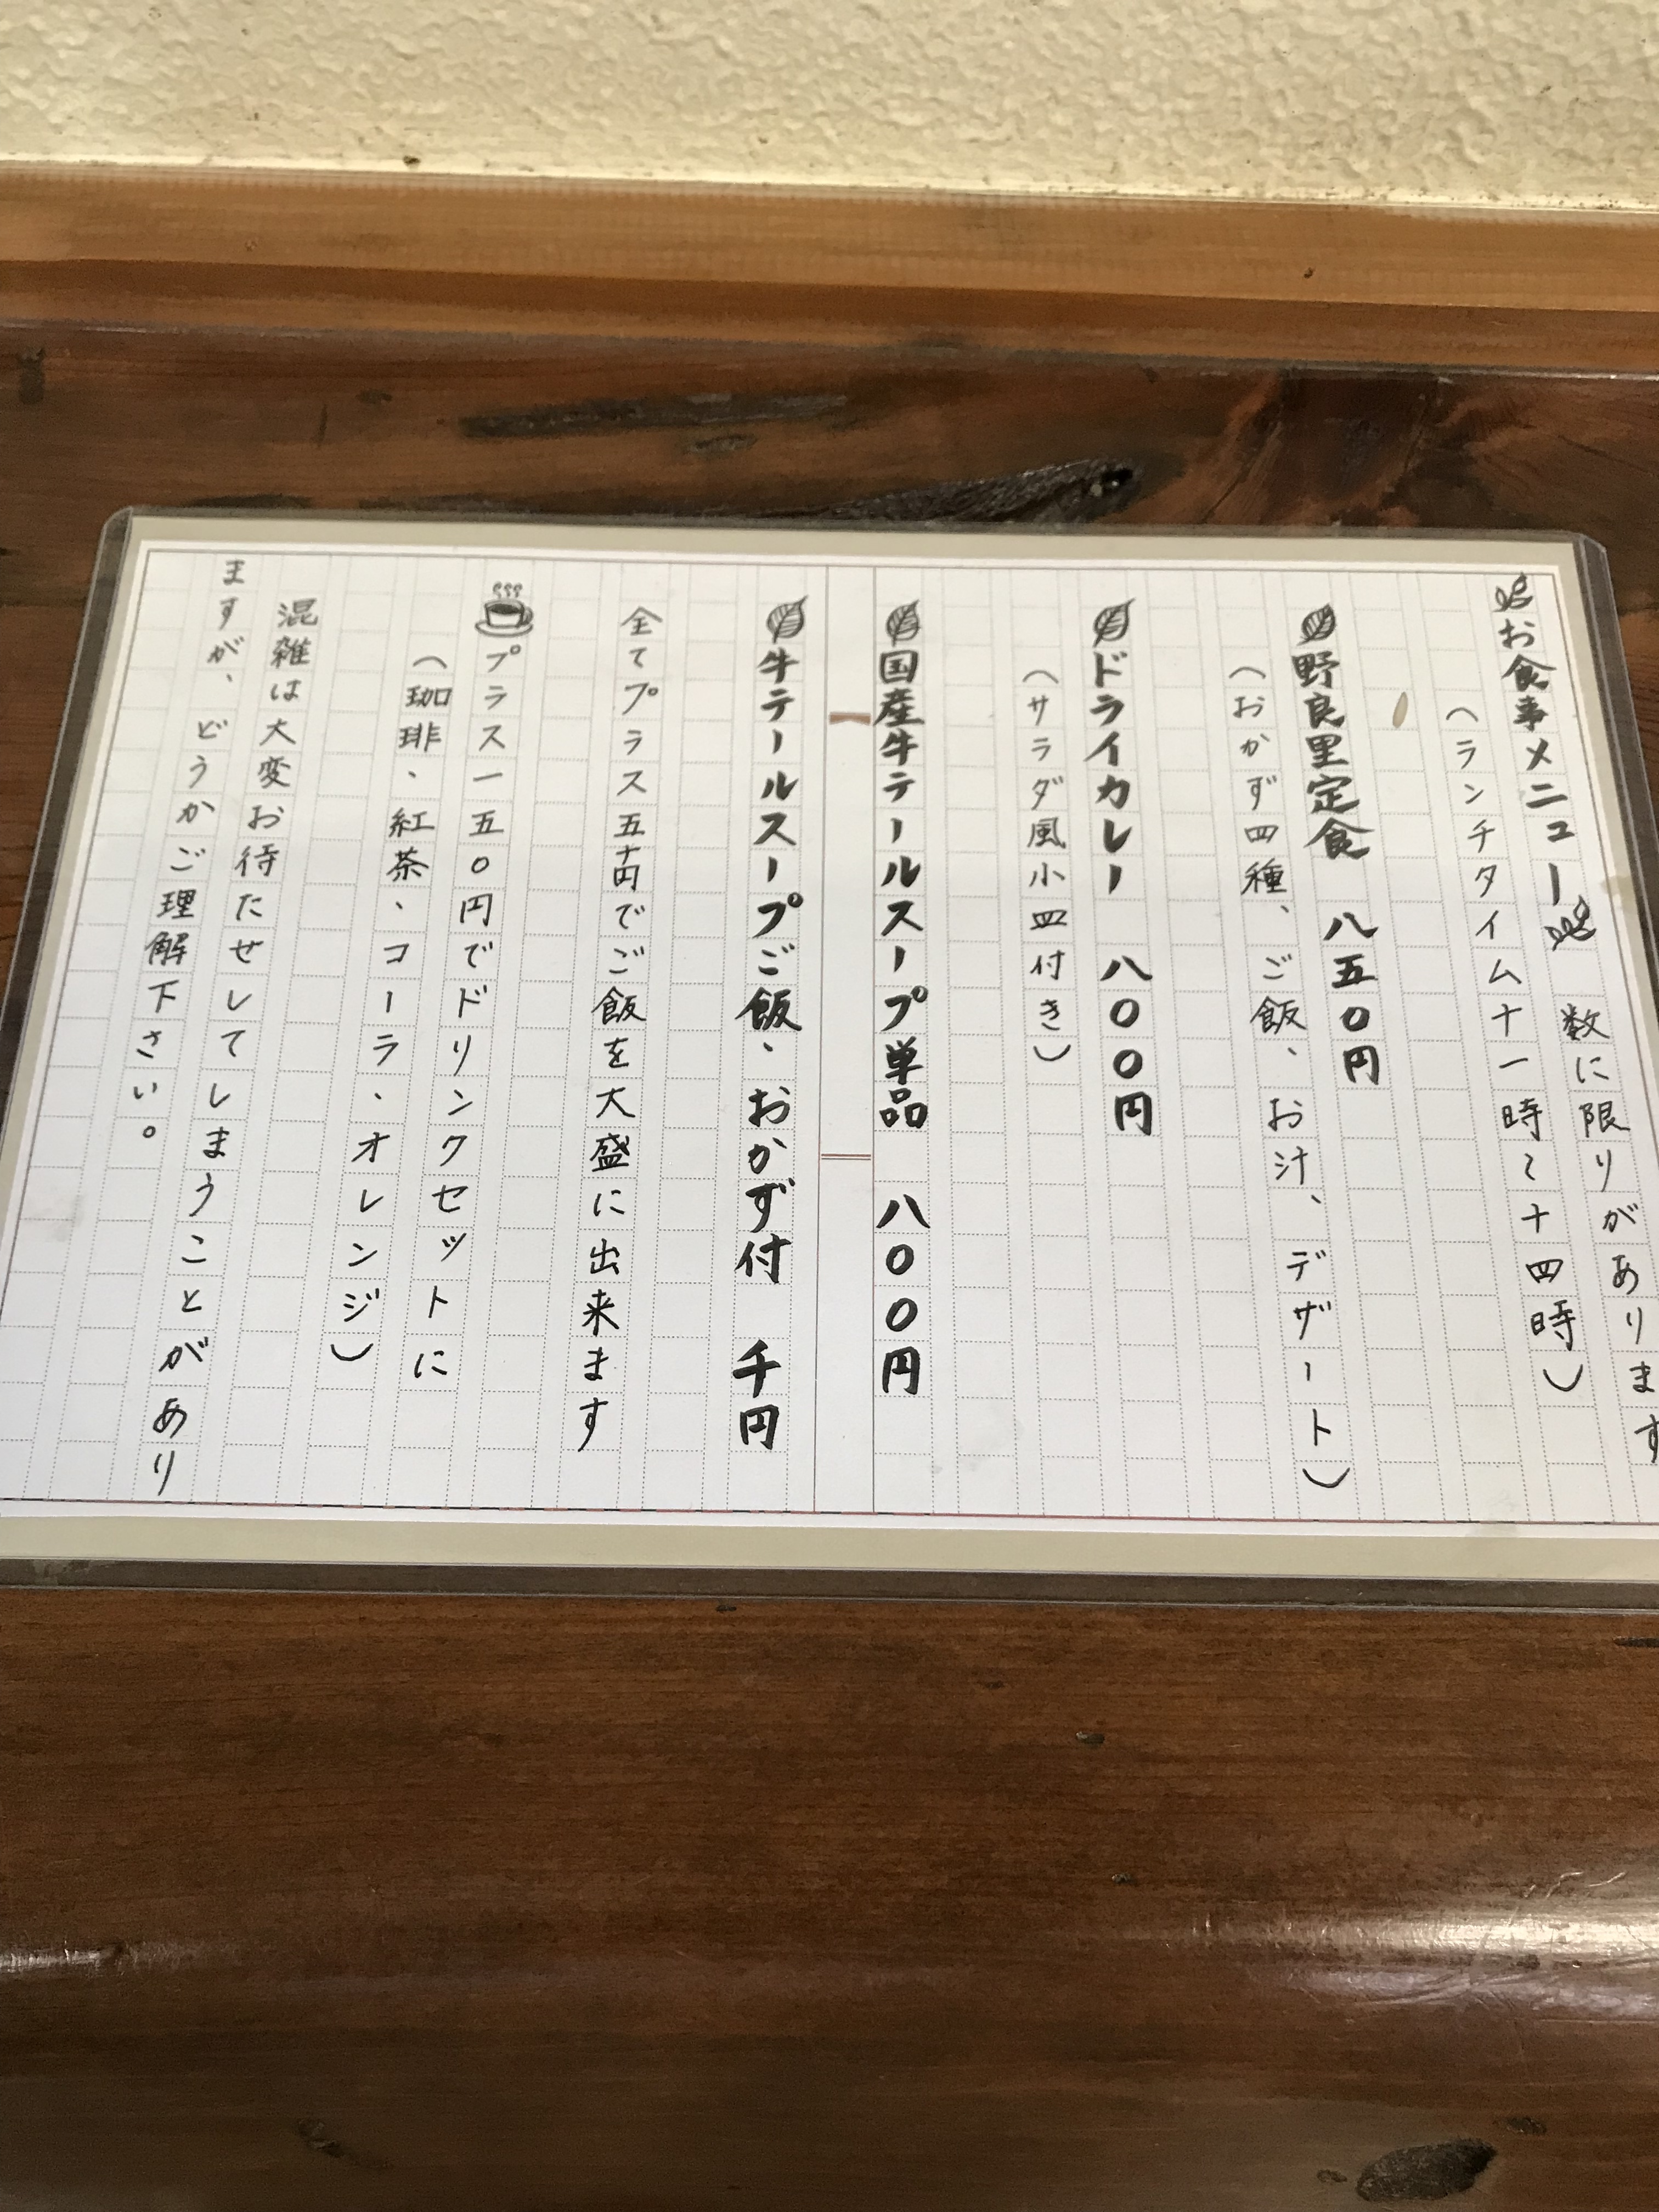 お食事メニュー 数に限りがあります
（ランチタイム十一時～十四時）
野良里定食 八五〇円
（おかず四種、ご飯、お汁、デザート）
ドライカレー 八〇〇円
（サラダ風小皿付き）
国産牛テールスープ単品 八〇〇円
牛テールスープご飯、おかず付 千円
全てプラス五十円でご飯を大盛に出来ます
プラス一五〇円でドリンクセットに
（珈琲、紅茶、コーラ、オレンジ）
混雑は大変お待たせしてしまうことがあり
ますが、どうかご理解下さい。